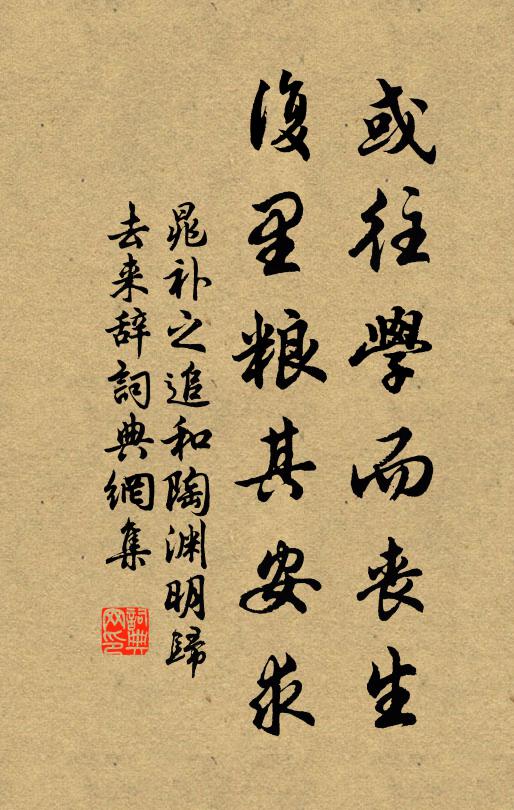 或往學而丧生
復里粮其安求
晁补之追和陶渊明歸
去来辞詞典網集
詞典
网印